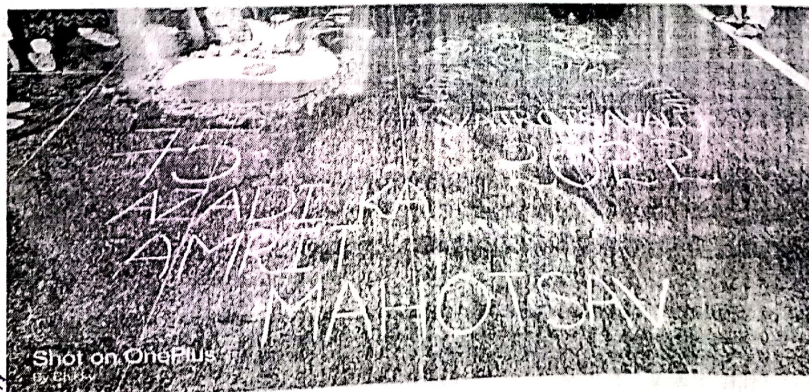 75
2022
AZADI KA
AMRIT
MAHOTSAV
Shot on OnePlus